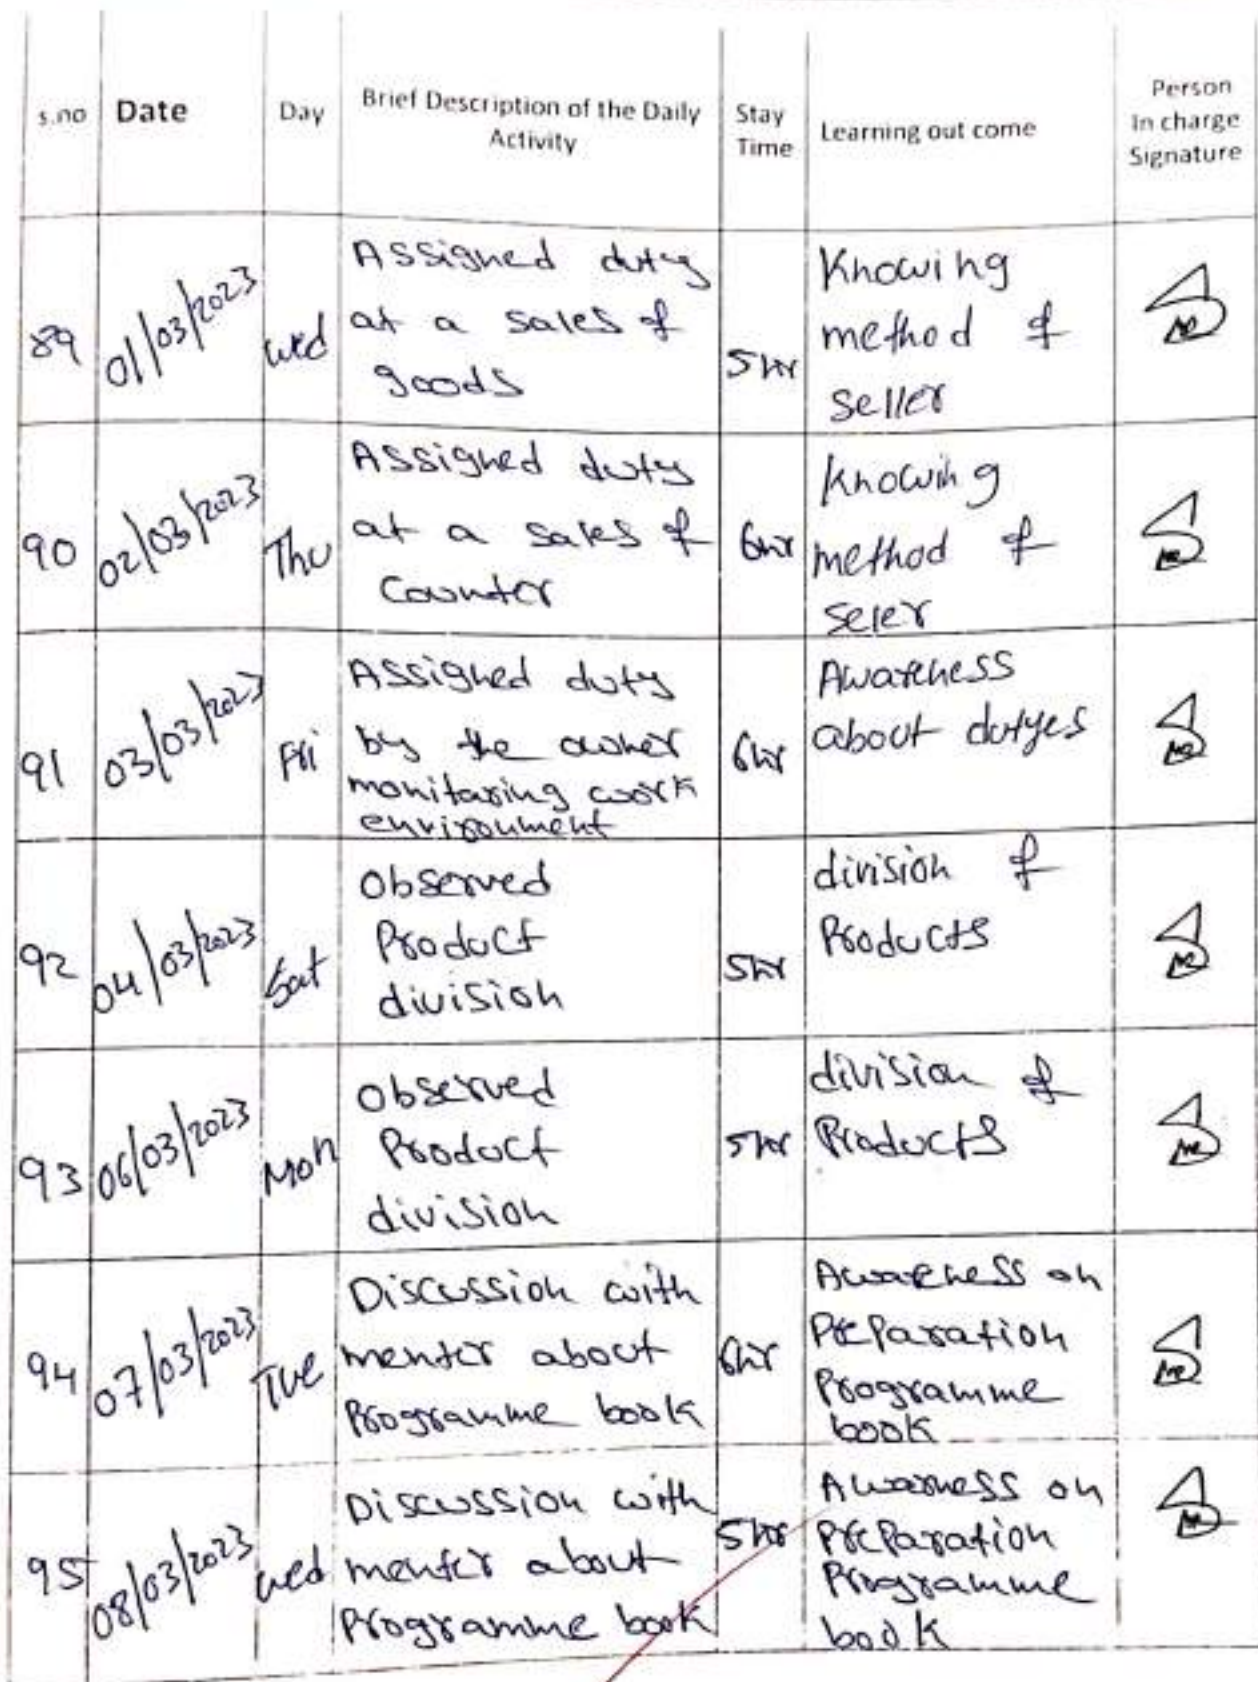 s.no Date Day Brief Description of the Daily Activity Stay Time Learning out come Person In charge Signature
89 01/03/2023 wed Assigned duty at a sales of goods 5 hr Knowing method of seller
90 02/03/2023 Thu Assigned duty at a sales of counter 6hr Knowing method of seler
91 03/03/2023 Fri Assigned duty by the owner monitaring work environment 6hr Awareness about dutyes
92 04/03/2023 Sat observed Product division 5hr division of Products
93 06/03/2023 Mon observed Product division 5hr division of Products
94 07/03/2023 Tue Discussion with menter about Programme book 6hr Awareness on Preparation Programme book
95 08/03/2023 wed Discussion with menter about Programme book 5hr Awarness on Preparation Programme book